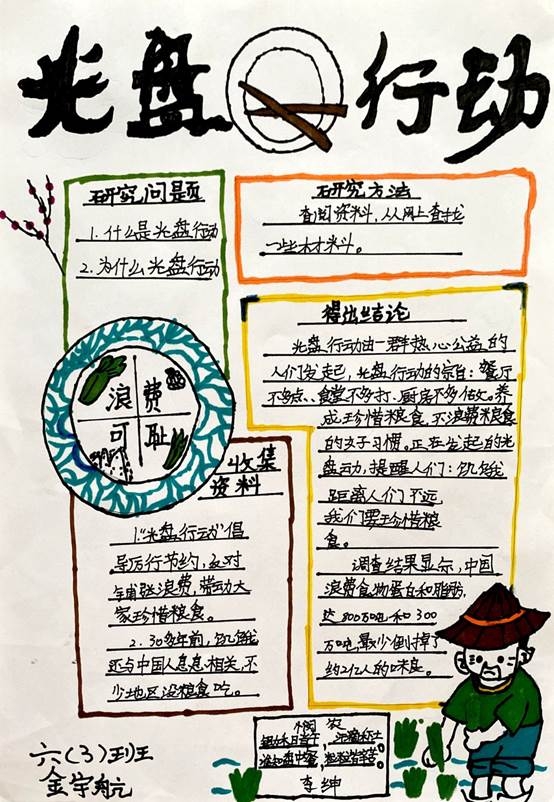 光盘行动
研究问题
1. 什么是光盘行动
2. 为什么光盘行动
研究方法
查阅资料，从网上查找
一些材料。
得出结论
光盘行动由一群热心公益的
人们发起，光盘行动的宗旨：餐厅
不多点、食堂不多打、厨房不多做。养
成珍惜粮食，不浪费粮食
的好习惯。正在发起的光
盘动，提醒人们：饥饿
距离人们不远，
我们要珍惜粮
食。
调查结果显示，中国
浪费食物蛋白和脂肪，
达800万吨和300
万吨，最少倒掉了
约2亿人的口味良。
浪费
可耻
收集
资料
1."光盘行动"倡
导厉行节约，反对
铺张浪费，带动大
家珍惜粮食。
2.30多年前，饥饿
还与中国人息息相关，不
少地区没粮食吃。
悯农
锄禾日当午，汗滴禾下土。
谁知盘中餐，粒粒皆辛苦。
李绅
六(3)班
金宇航